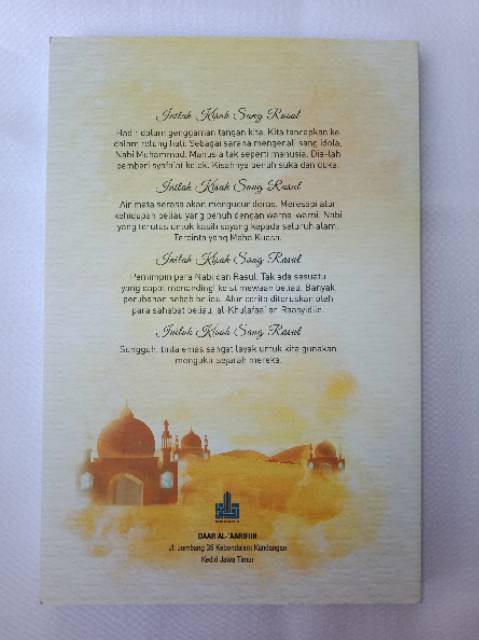 Inilah Kisah Sang Rasul
Hadir dalam genggaman tangan kita. Kita tancapkan ke
dalam relung hati. Sebagai sarana mengenali sang idola,
Nabi Muhammad. Manusia tak seperti manusia. Dia-lah
pemberi syafa'at kelak. Kisahnya penuh suka dan duka.
Inilah Kisah Sang Rasul
Air mata serasa akan mengucur deras. Meresapi alur
kehidupan beliau yang penuh dengan warna-warni. Nabi
yang terutus untuk kasih sayang kepada seluruh alam.
Tercinta yang Maha Kuasa.
Inilah Kisah Sang Rasul
Pemimpin para Nabi dan Rasul. Tak ada sesuatu
yang dapat menandingi keistimewaan beliau. Banyak
perubahan sebab beliau. Alur cerita diteruskan oleh
para sahabat beliau, al-Khulafaa' ar-Raasyidiin.
Inilah Kisah Sang Rasul
Sungguh, tinta emas sangat layak untuk kita gunakan
mengukir sejarah mereka.
DAAR AL-'AARIFIIN
Jl. Jombang 35 Kebondalem Kandangan
Kediri Jawa Timur